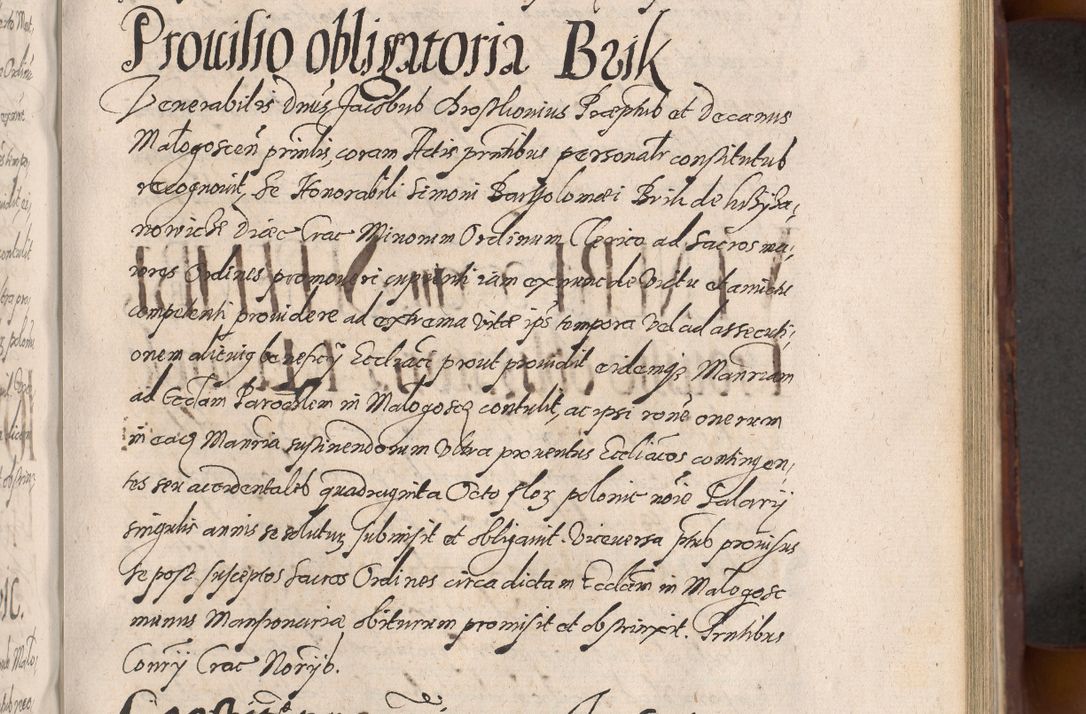 Prouisio obligatoria Brik
Venerabilis Dnus Jacobus Chrostkouius Præptus et Decanus
Malogoscen̄ printis, coram Actis prntibus personalr constitutus
recognouit, Se Honorabili Simoni Bartholomæi Brik de
nowicze Diæc Crac Minorum Ordinum Clerico ad Sacros ma,
iores Ordines promoueri cupienti iam ex nunc de Victu et amictu
competenti prouidere ad extrema vitæ ips tempora Vel ad assecuti,
onem alicuius beneficij Eccliaci prout prouidit eidemqs Manriam
ad Ecclam Parochlem in Malogoscz contulit, ac ipsi rone onerum
in eacz Manria sustinendorum Vltra prouentus Eccliacos contingen,
tes seu accidentales quadraginta Octo flor polonic noie Salarij
singulis annis se soluturz submisit et obligauit. Viceversa ptus prouisus
se post susceptos Sacros Ordines circa dictam Ecclam in Malogosc
munus Mansionariæ obiturum promisit et obstrinxit. Prntibus
Conrij Crac Norijs.